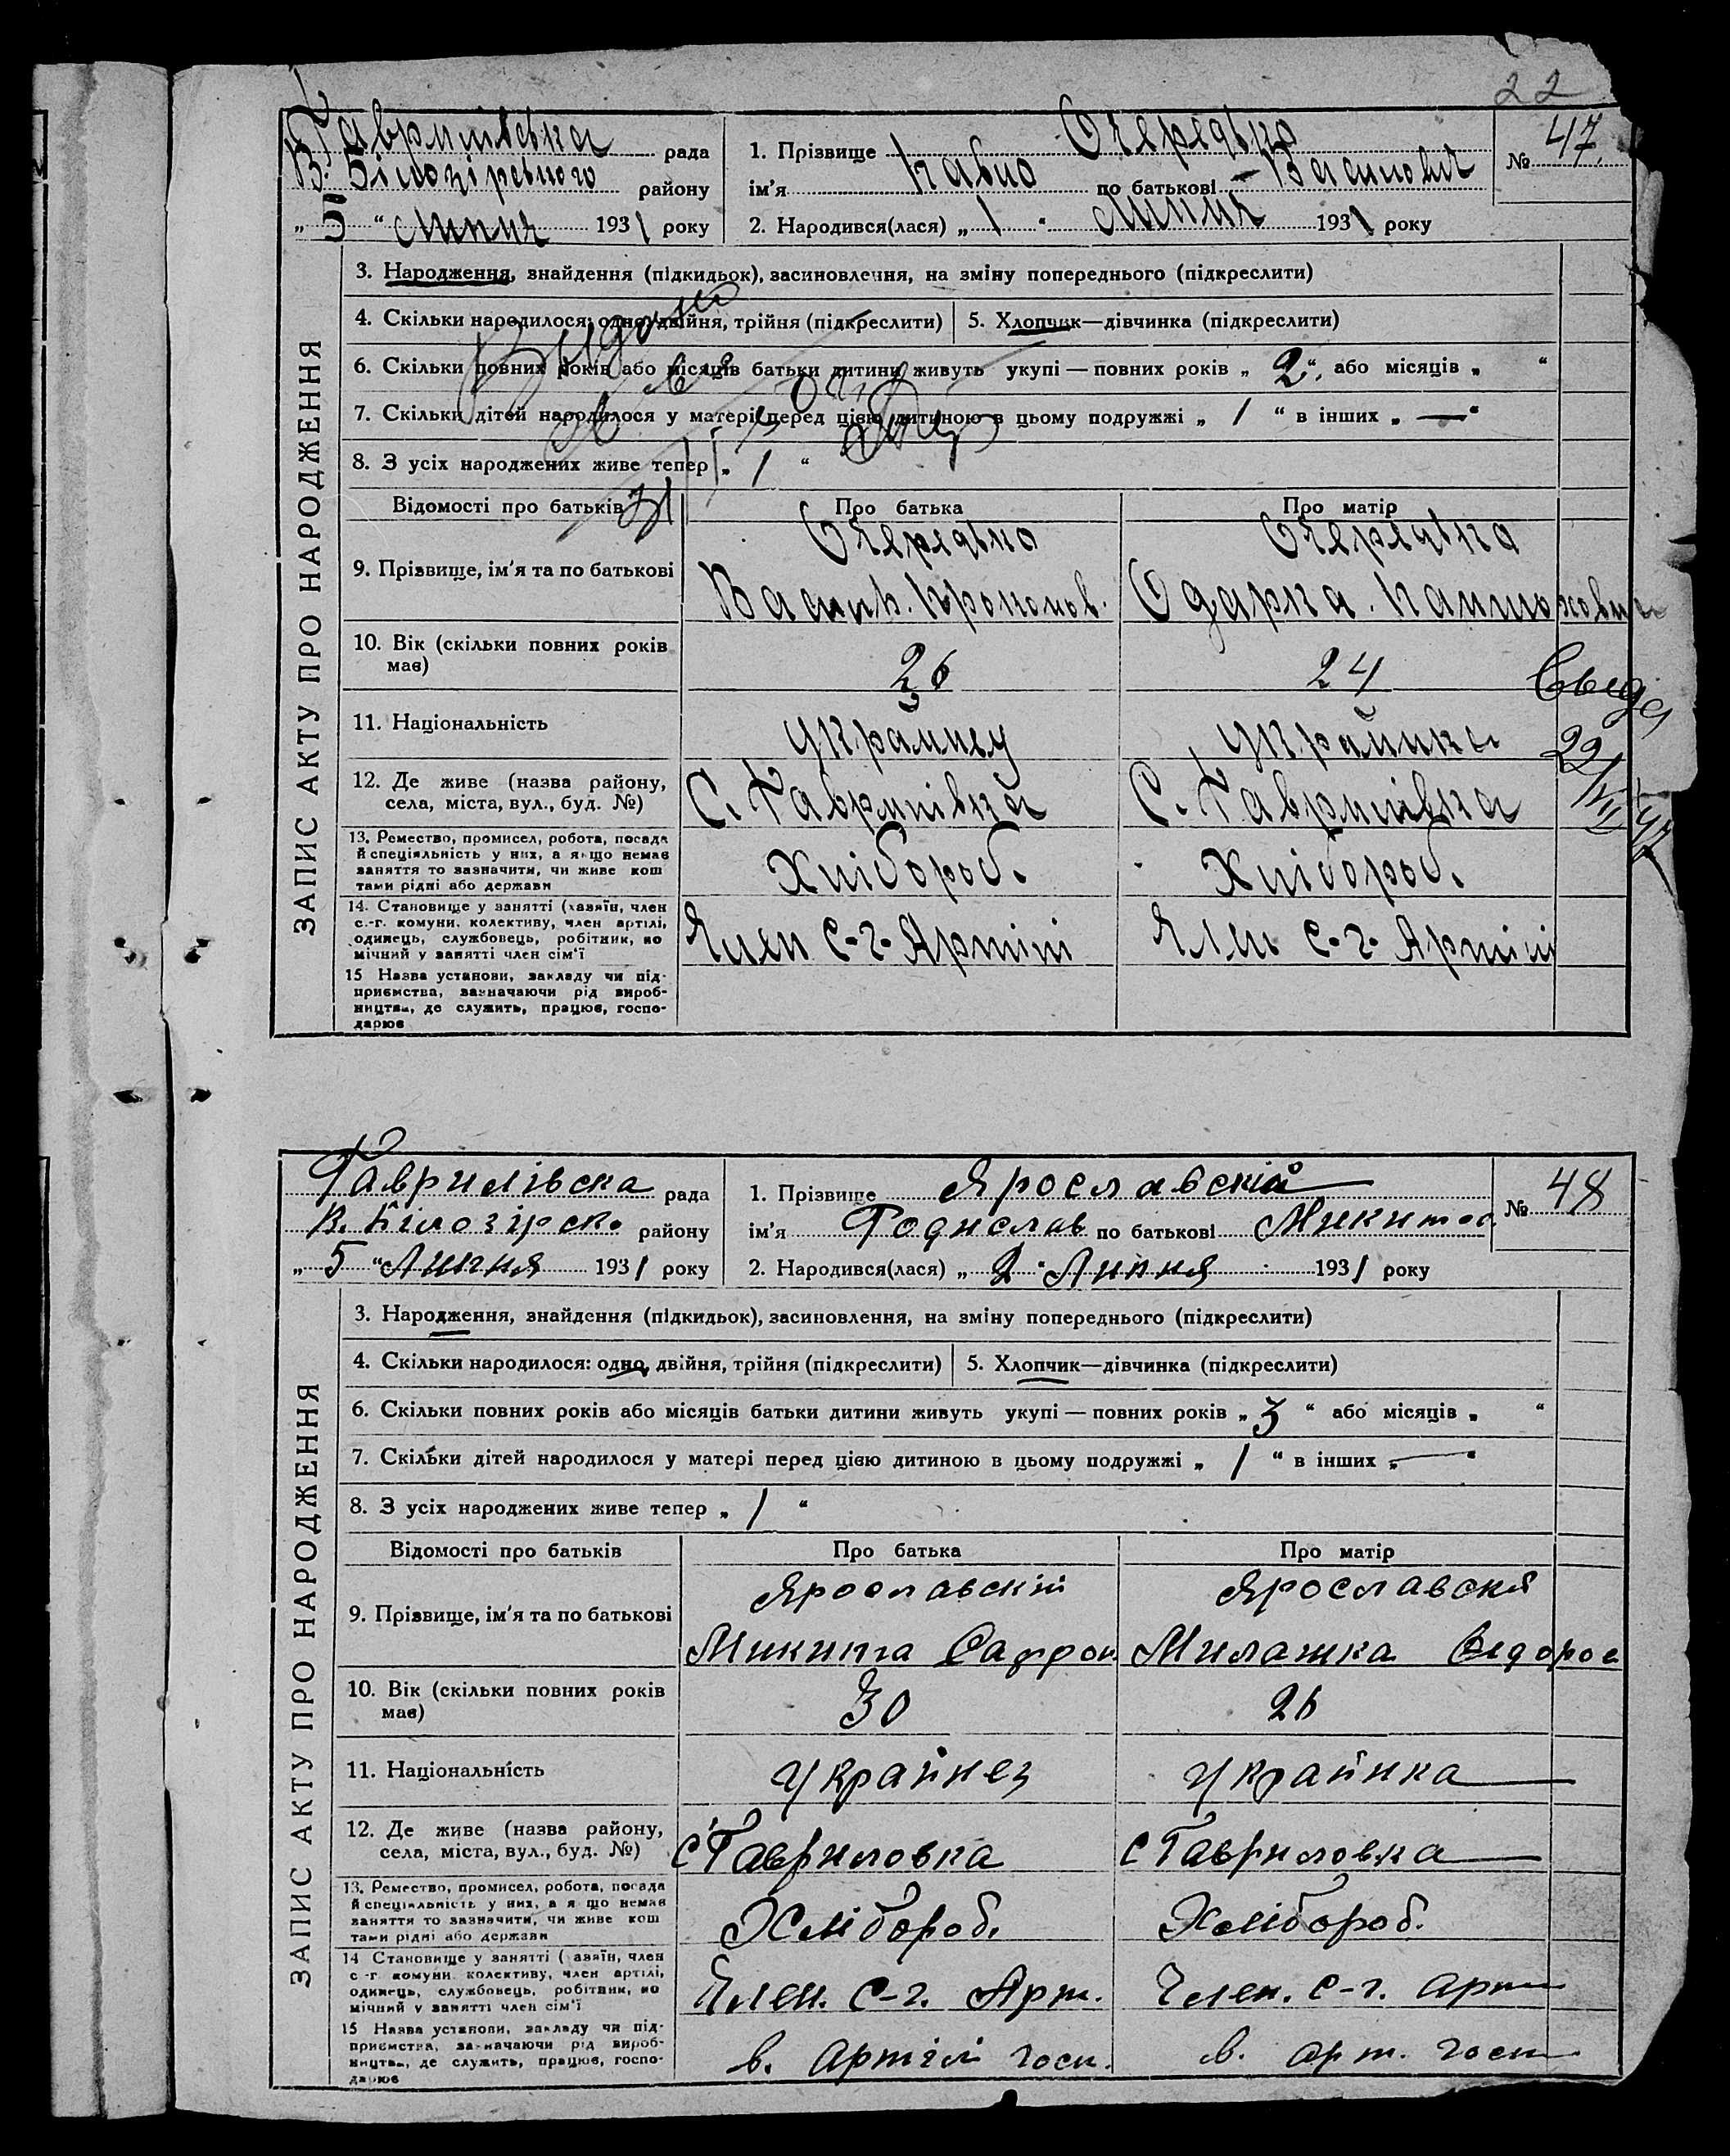 22
Гаврилівска рада
В. Білозіревного району
„5“ Липня 1931 року
1. Прізвище Очередько
ім'я Павло по батькові Василович
№ 47.
2. Народився(лася) „1“ Липня 1931 року
ЗАПИС АКТУ ПРО НАРОДЖЕННЯ
3. Народження, знайдення (підкидьок), засиновлення, на зміну попереднього (підкреслити)
4. Скільки народилося: одно, двійня, трійня (підкреслити)
5. Хлопчик—дівчинка (підкреслити)
6. Скільки повних років або місяців батьки дитини живуть укупі — повних років „2“, або місяців „ “
7. Скільки дітей народилося у матері перед цією дитиною в цьому подружжі „1“ в інших „—“
8. З усіх народжених живе тепер „1“
Відомості про батьків
Про батька
Про матір
9. Прізвище, ім'я та по батькові
Очередько
Василь. Прокопов.
Очередька
Одарка.
10. Вік (скільки повних років має)
26
24
11. Національність
Украинец
Украйинка
12. Де живе (назва району, села, міста, вул., буд. №)
С. Гаврилівка
С. Гаврилівка
13. Ремество, промисел, робота, посада й спеціяльність у них, а якщо немає заняття то зазначити, чи живе коштами рідні або держави
Хлібороб.
Хлібороб.
14. Становище у занятті (хазяїн, член с.-г. комуни, колективу, член артілі, одинець, службовець, робітник, помічний у занятті член сім'ї
Член с-г. Артілі
Член с-г. Артілі
15 Назва установи, закладу чи підприємства, зазначаючи рід виробництва, де служить, працює, господарює
Гаврилівска рада
В. Білозірско району
„5“ Липня 1931 року
1. Прізвище Ярославский
ім'я Родислав по батькові Микитов.
№ 48
2. Народився(лася) „2“ Липня 1931 року
ЗАПИС АКТУ ПРО НАРОДЖЕННЯ
3. Народження, знайдення (підкидьок), засиновлення, на зміну попереднього (підкреслити)
4. Скільки народилося: одно, двійня, трійня (підкреслити)
5. Хлопчик—дівчинка (підкреслити)
6. Скільки повних років або місяців батьки дитини живуть укупі — повних років „3“ або місяців „ “
7. Скільки дітей народилося у матері перед цією дитиною в цьому подружжі „1“ в інших „—“
8. З усіх народжених живе тепер „1“
Відомості про батьків
Про батька
Про матір
9. Прізвище, ім'я та по батькові
Ярославскій
Микита Сафрон.
Ярославска
Милашка Федоров
10. Вік (скільки повних років має)
30
26
11. Національність
Украйнец
Украйинка
12. Де живе (назва району, села, міста, вул., буд. №)
с Гавриловка
с Гавриловка
13. Ремество, промисел, робота, посада й спеціяльність у них, а якщо немає заняття то зазначити, чи живе коштами рідні або держави
Хлібороб.
Хлібороб.
14 Становище у занятті (хазяїн, член с-г комуни, колективу, член артілі, одинець, службовець, робітник, помічний у занятті член сім'ї
Член. с-г. Арт.
Член. с-г. арт
15 Назва установи, закладу чи підприємства, зазначаючи рід виробництва, де служить, працює, господарює
в. артілі госп.
в. арт. госп